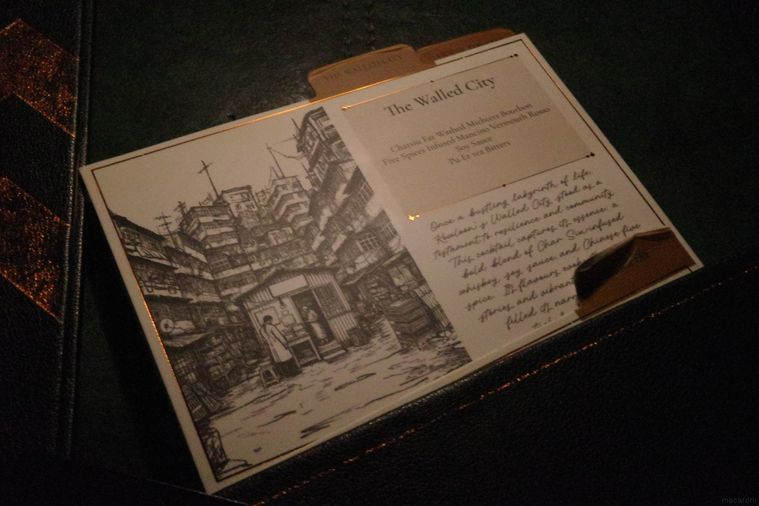 THE WALLED CITY
The Walled City
Charsiu Fat Washed Michters Bourbon
Five Spices Infused Mancino Vermouth Rosso
Soy Sauce
Pu Er tea Bitters
Once a bustling labyrinth of life
Kowloon's Walled City stood as a
testament to resilience and community
This cocktail captures its essence a
bold blend of Char Siu-infused
whiskey, soy sauce, and Chinese five
spice. Its flavours
stories and
filled its